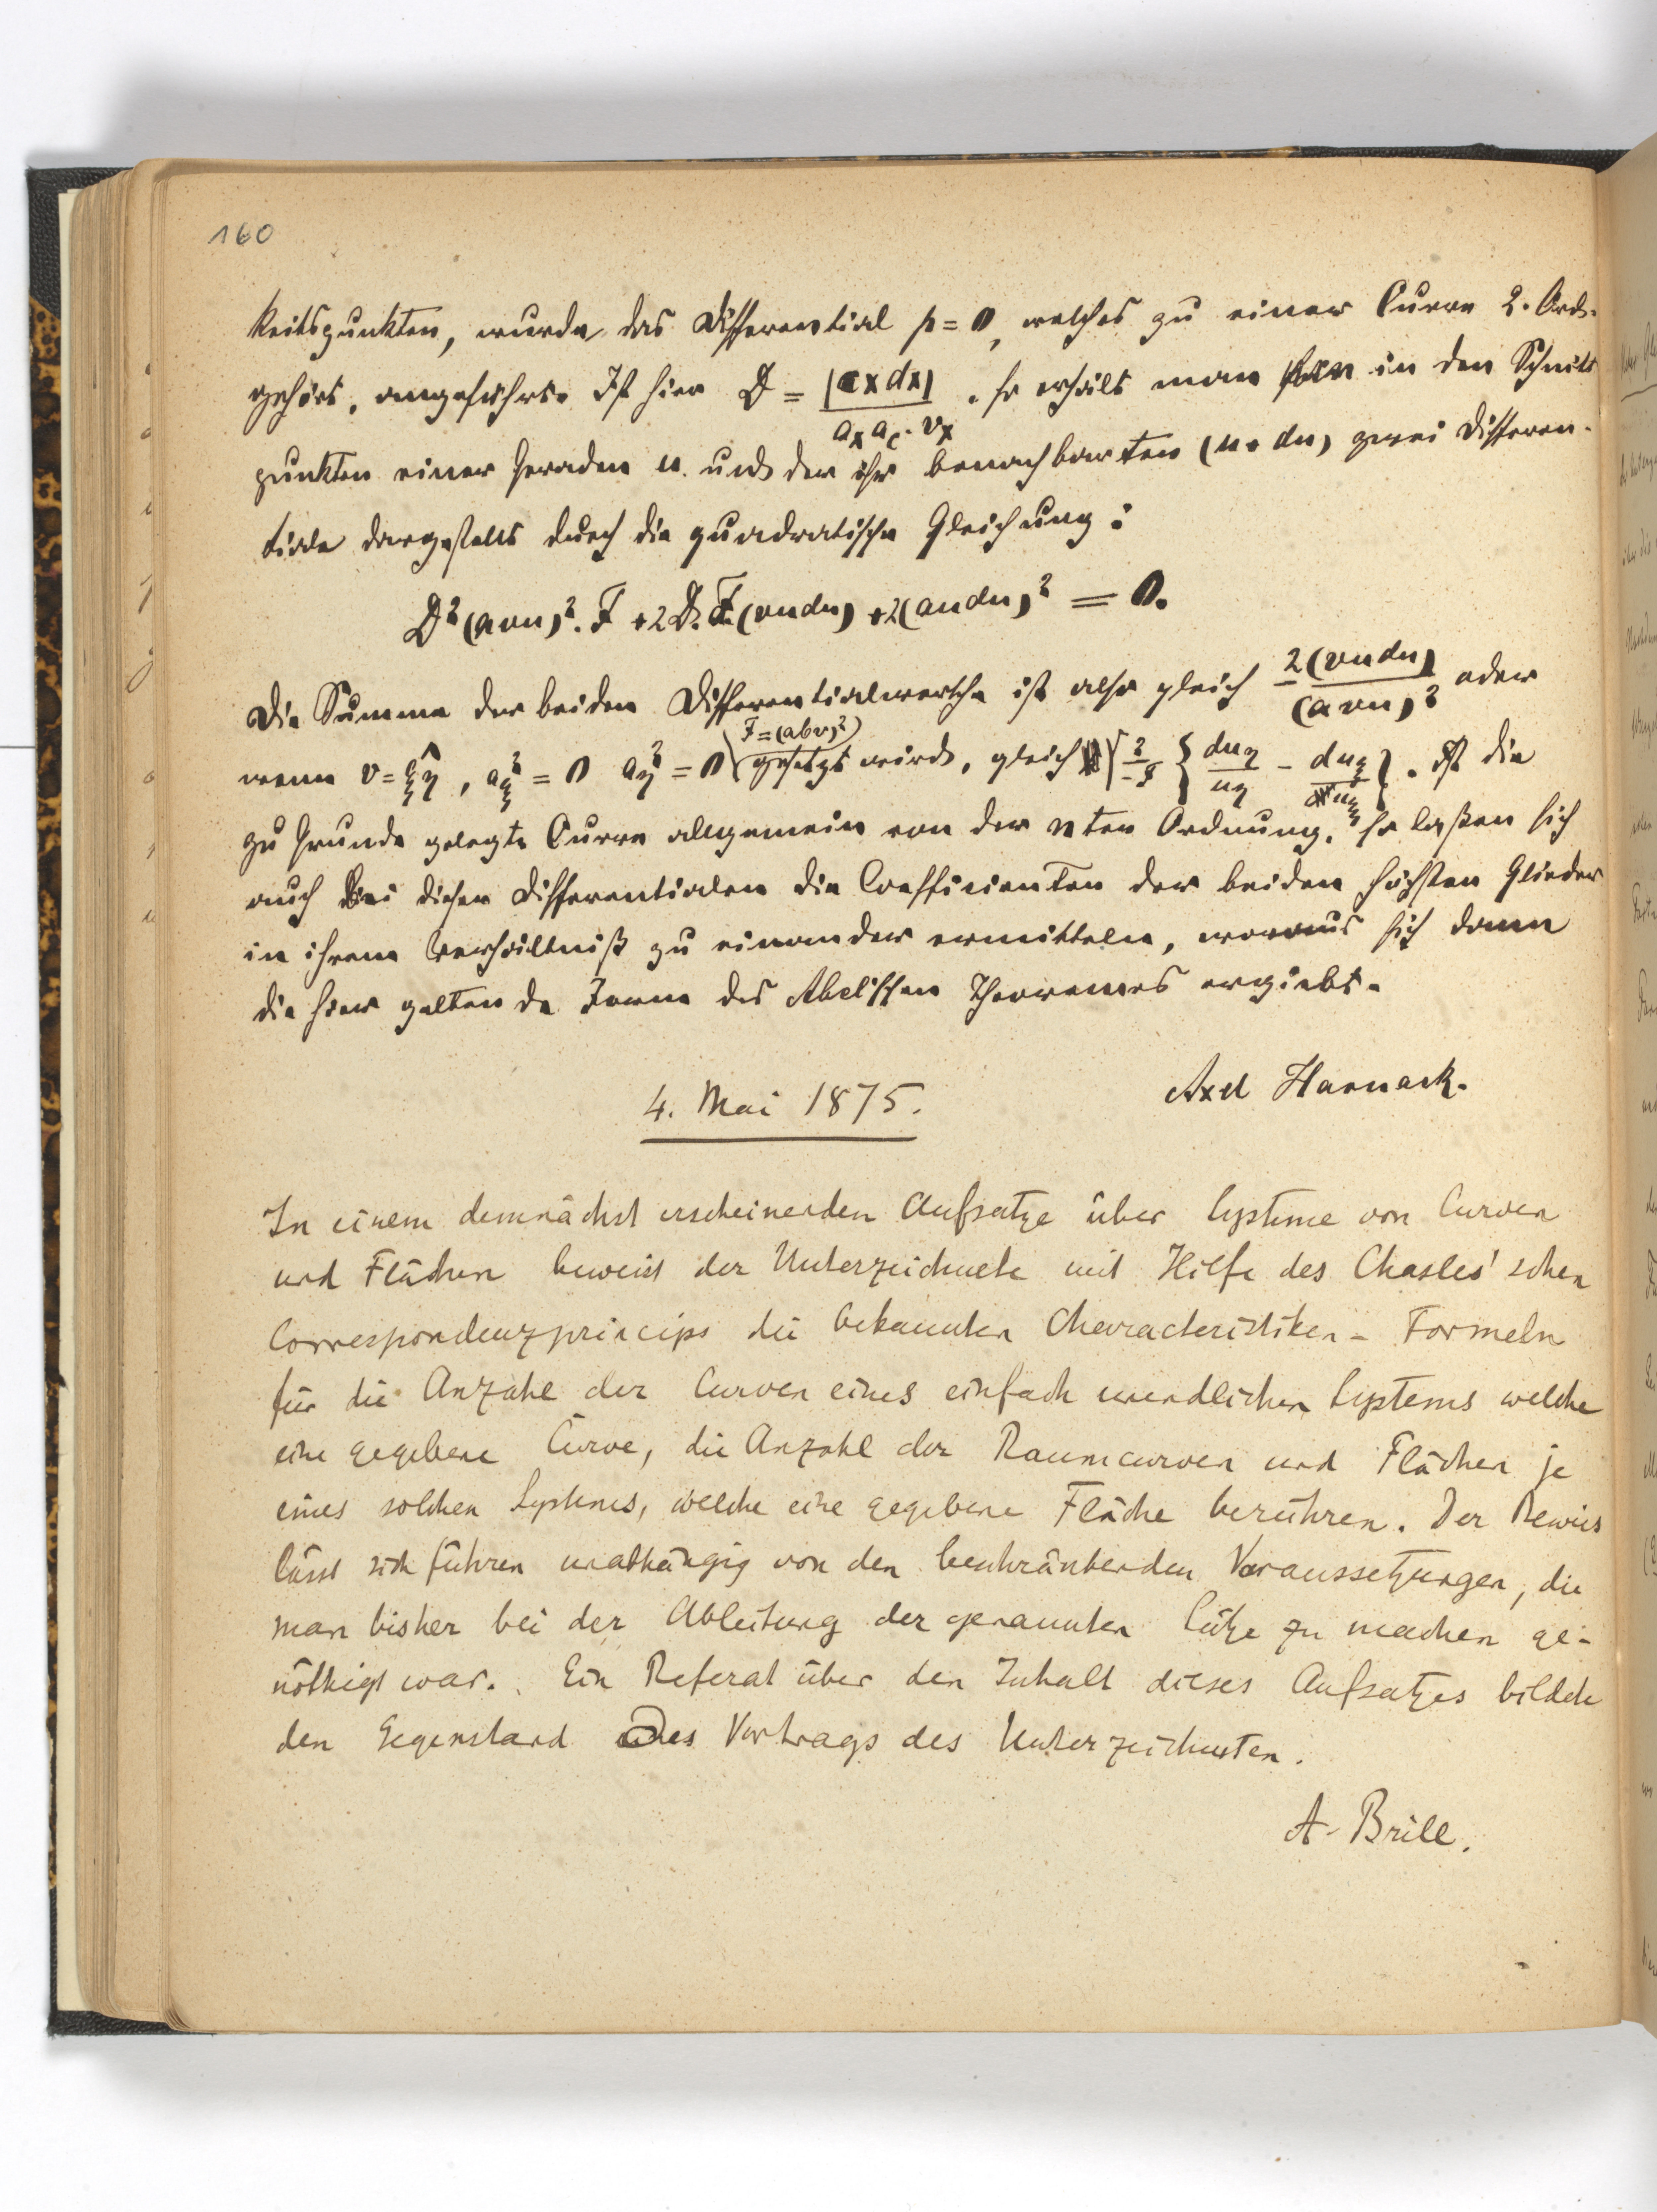 160
keitspunkten, wurde das Differential p = 0, welches zu einer Curve 2. Ord.
gehört, angeführt. Ist hier D = |cxdx| / a_x a_c · v_x , so erhält man in den Schnitt
punkten einer Geraden u. und der ihr benachbarten (u + du) zwei Differen-
tiale dargestellt durch die quadratische Gleichung:
D² (avu)². F + 2 D. F. (vudu) + 2(audu)² = 0.
Die Summe der beiden Differentialwerthe ist also gleich - 2(vudu) / (avu)² oder
wenn v = ξ͡η , a_ξ² = 0 a_η² = 0 (F = (abv)²) gesetzt wird, gleich { du_η / u_η - du_ξ / u_ξ }. Ist die
zu Grunde gelegte Curve allgemein von der nten Ordnung, so laßen sich
auch bei diesen Differentialen die Coefficienten der beiden höchsten Glieder
in ihrem Verhältniß zu einander ermitteln, woraus sich dann
die hier geltende Form des Abelschen Theoremes ergiebt.
Axel Harnack.
4. Mai 1875.
In einem demnächst erscheinenden Aufsatze über Systeme von Curven
und Flächen beweist der Unterzeichnete mit Hilfe des Chasles'schen
Correspondenzprincips die bekannten Characteristiken-Formeln
für die Anzahl der Curven eines einfach unendlichen Systems welche
eine gegebene Curve, die Anzahl der Raumcurven und Flächen je
eines solchen Systems, welche eine gegebene Fläche berühren. Der Beweis
lässt sich führen unabhängig von den beschränkenden Voraussetzungen, die
man bisher bei der Ableitung der genannten Sätze zu machen ge-
nöthigt war. Ein Referat über den Inhalt dieses Aufsatzes bildete
den Gegenstand des Vortrags des Unterzeichneten.
A. Brill.